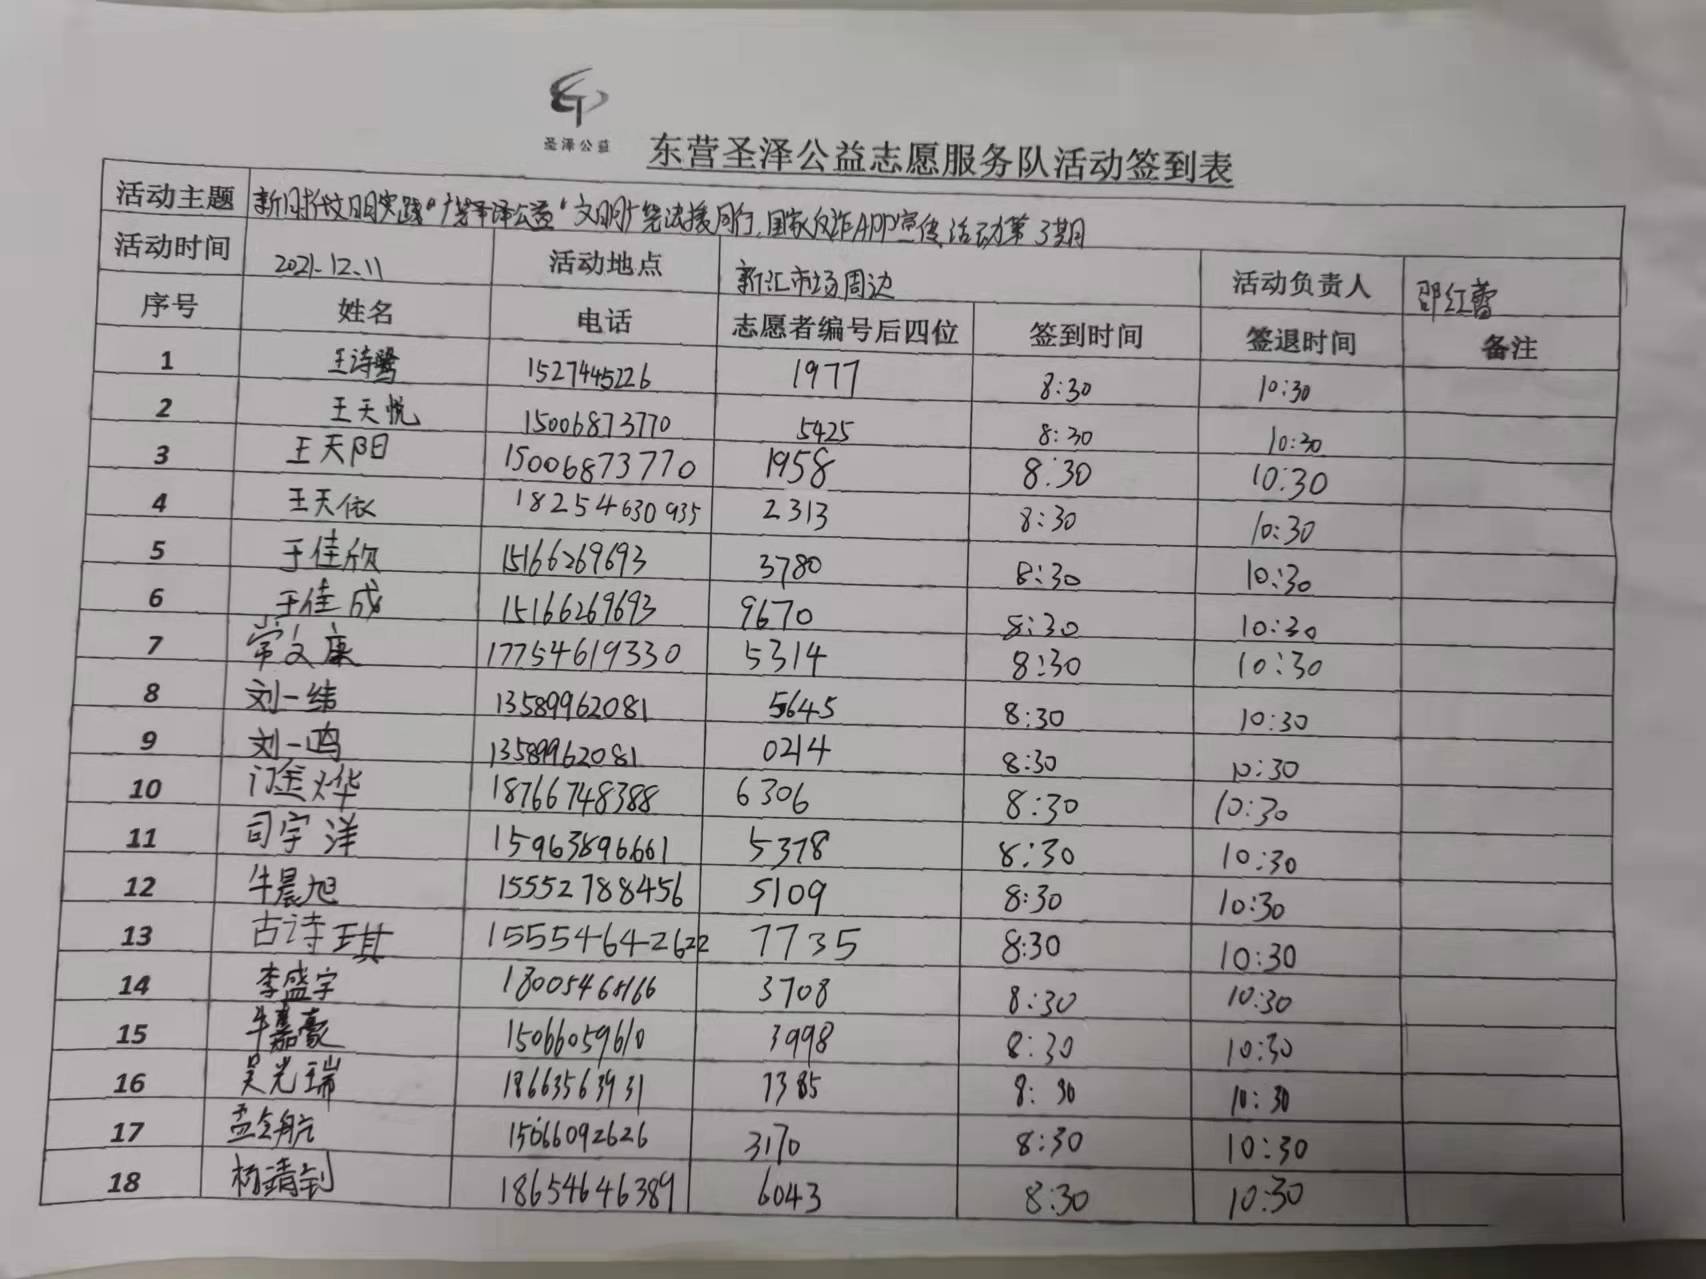 圣泽公益
东营圣泽公益志愿服务队活动签到表
活动主题 新时代文明实践"广饶圣泽公益"文明广饶法援同行,国家反诈APP宣传活动第3期
活动时间 2021.12.11 活动地点 新汇市场周边 活动负责人 邵红蕾
序号 姓名 电话 志愿者编号后四位 签到时间 签退时间 备注
1 王诗鹭 1527445226 1977 8:30 10:30
2 王天悦 15006873770 5425 8:30 10:30
3 王天阳 15006873770 1958 8:30 10:30
4 王天依 18254630935 2313 8:30 10:30
5 于佳欣 15166269693 3780 8:30 10:30
6 于佳成 15166269693 9670 8:30 10:30
7 常文康 17754619330 5314 8:30 10:30
8 刘一纬 13589962081 5645 8:30 10:30
9 刘一鸣 13589962081 0214 8:30 10:30
10 门金烨 18766748388 6306 8:30 10:30
11 司宇洋 15963896661 5378 8:30 10:30
12 牛晨旭 15552788456 5109 8:30 10:30
13 古诗琪 15554642622 7735 8:30 10:30
14 李盛宇 3708 8:30 10:30
15 牛嘉豪 15066059610 3998 8:30 10:30
16 吴光瑞 7385 8:30 10:30
17 15066092626 3170 8:30 10:30
18 杨靖钊 18654646389 6043 8:30 10:30